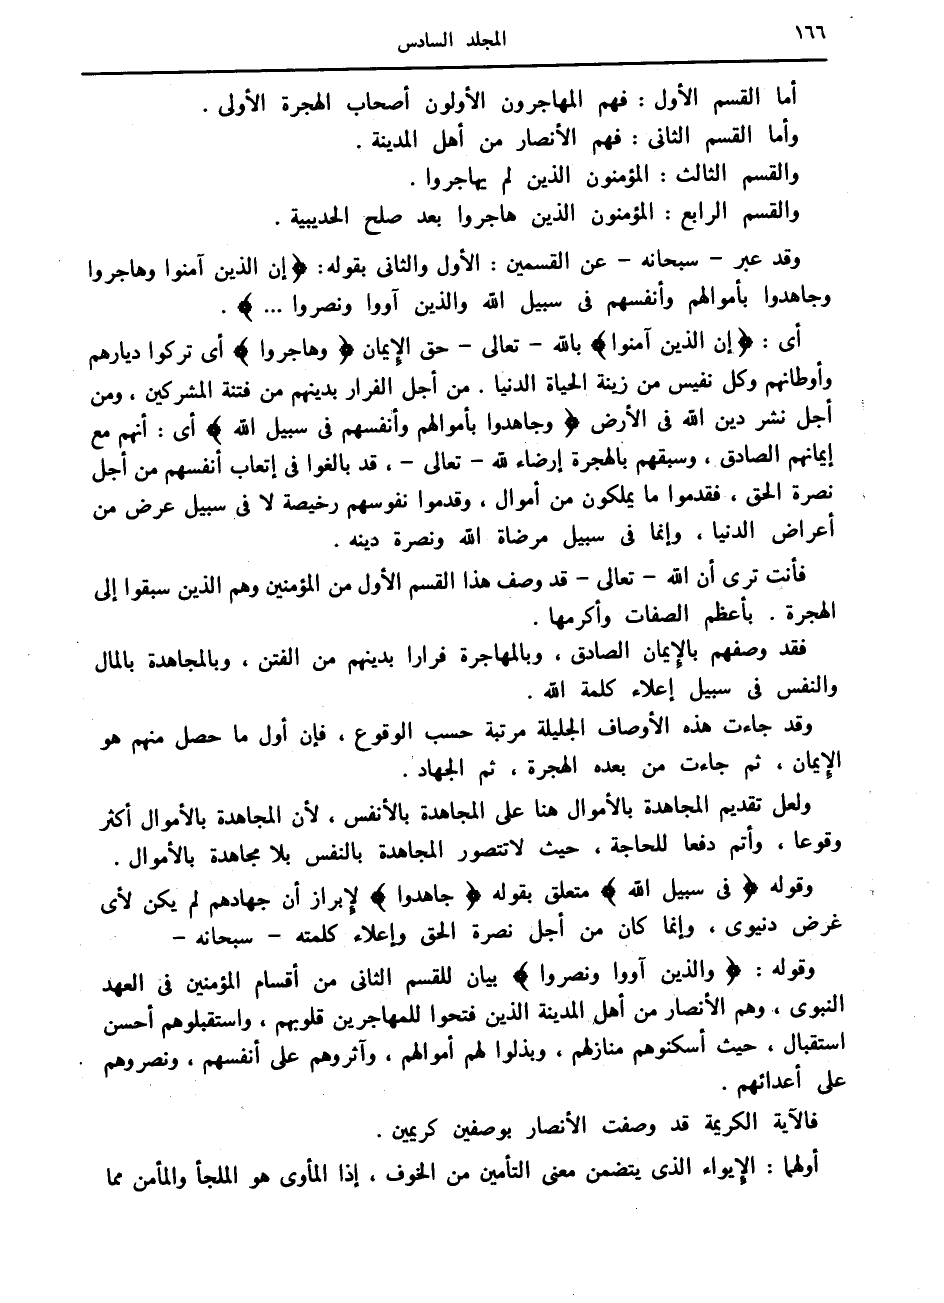 ١٦٦
المجلد السادس
أما القسم الأول : فهم المهاجرون الأولون أصحاب الهجرة الأولى .
وأما القسم الثانى : فهم الأنصار من أهل المدينة .
والقسم الثالث : المؤمنون الذين لم يهاجروا .
والقسم الرابع : المؤمنون الذين هاجروا بعد صلح الحديبية .
وقد عبر – سبحانه – عن القسمين : الأول والثانى بقوله: ﴿ إن الذين آمنوا وهاجروا
وجاهدوا بأموالهم وأنفسهم فى سبيل الله والذين آووا ونصروا ... ﴾ .
أى : ﴿ إن الذين آمنوا ﴾ بالله – تعالى – حق الإيمان ﴿ وهاجروا ﴾ أى تركوا ديارهم
وأوطانهم وكل نفيس من زينة الحياة الدنيا . من أجل الفرار بدينهم من فتنة المشركين ، ومن
أجل نشر دين الله فى الأرض ﴿ وجاهدوا بأموالهم وأنفسهم فى سبيل الله ﴾ أى : أنهم مع
إيمانهم الصادق ، وسبقهم بالهجرة إرضاء لله – تعالى – ، قد بالغوا فى إتعاب أنفسهم من أجل
نصرة الحق ، فقدموا ما يملكون من أموال ، وقدموا نفوسهم رخيصة لا فى سبيل عرض من
أعراض الدنيا ، وإنما فى سبيل مرضاة الله ونصرة دينه .
فأنت ترى أن الله – تعالى – قد وصف هذا القسم الأول من المؤمنين وهم الذين سبقوا إلى
الهجرة . بأعظم الصفات وأكرمها .
فقد وصفهم بالإيمان الصادق ، وبالمهاجرة فرارا بدينهم من الفتن ، وبالمجاهدة بالمال
والنفس فى سبيل إعلاء كلمة الله .
وقد جاءت هذه الأوصاف الجليلة مرتبة حسب الوقوع ، فإن أول ما حصل منهم هو
الإيمان ، ثم جاءت من بعده الهجرة ، ثم الجهاد .
ولعل تقديم المجاهدة بالأموال هنا على المجاهدة بالأنفس ، لأن المجاهدة بالأموال أكثر
وقوعا ، وأتم دفعا للحاجة ، حيث لاتتصور المجاهدة بالنفس بلا مجاهدة بالأموال .
وقوله ﴿ فى سبيل الله ﴾ متعلق بقوله ﴿ جاهدوا ﴾ لإبراز أن جهادهم لم يكن لأى
غرض دنيوى ، وإنما كان من أجل نصرة الحق وإعلاء كلمته – سبحانه –
وقوله : ﴿ والذين آووا ونصروا ﴾ بيان للقسم الثانى من أقسام المؤمنين فى العهد
النبوى ، وهم الأنصار من أهل المدينة الذين فتحوا للمهاجرين قلوبهم ، واستقبلوهم أحسن
استقبال ، حيث أسكنوهم منازلهم ، وبذلوا لهم أموالهم ، وآثروهم على أنفسهم ، ونصروهم
على أعدائهم .
فالآية الكريمة قد وصفت الأنصار بوصفين كريمين .
أولهما : الإيواء الذى يتضمن معنى التأمين من الخوف ، إذا المأوى هو الملجأ والمأمن مما